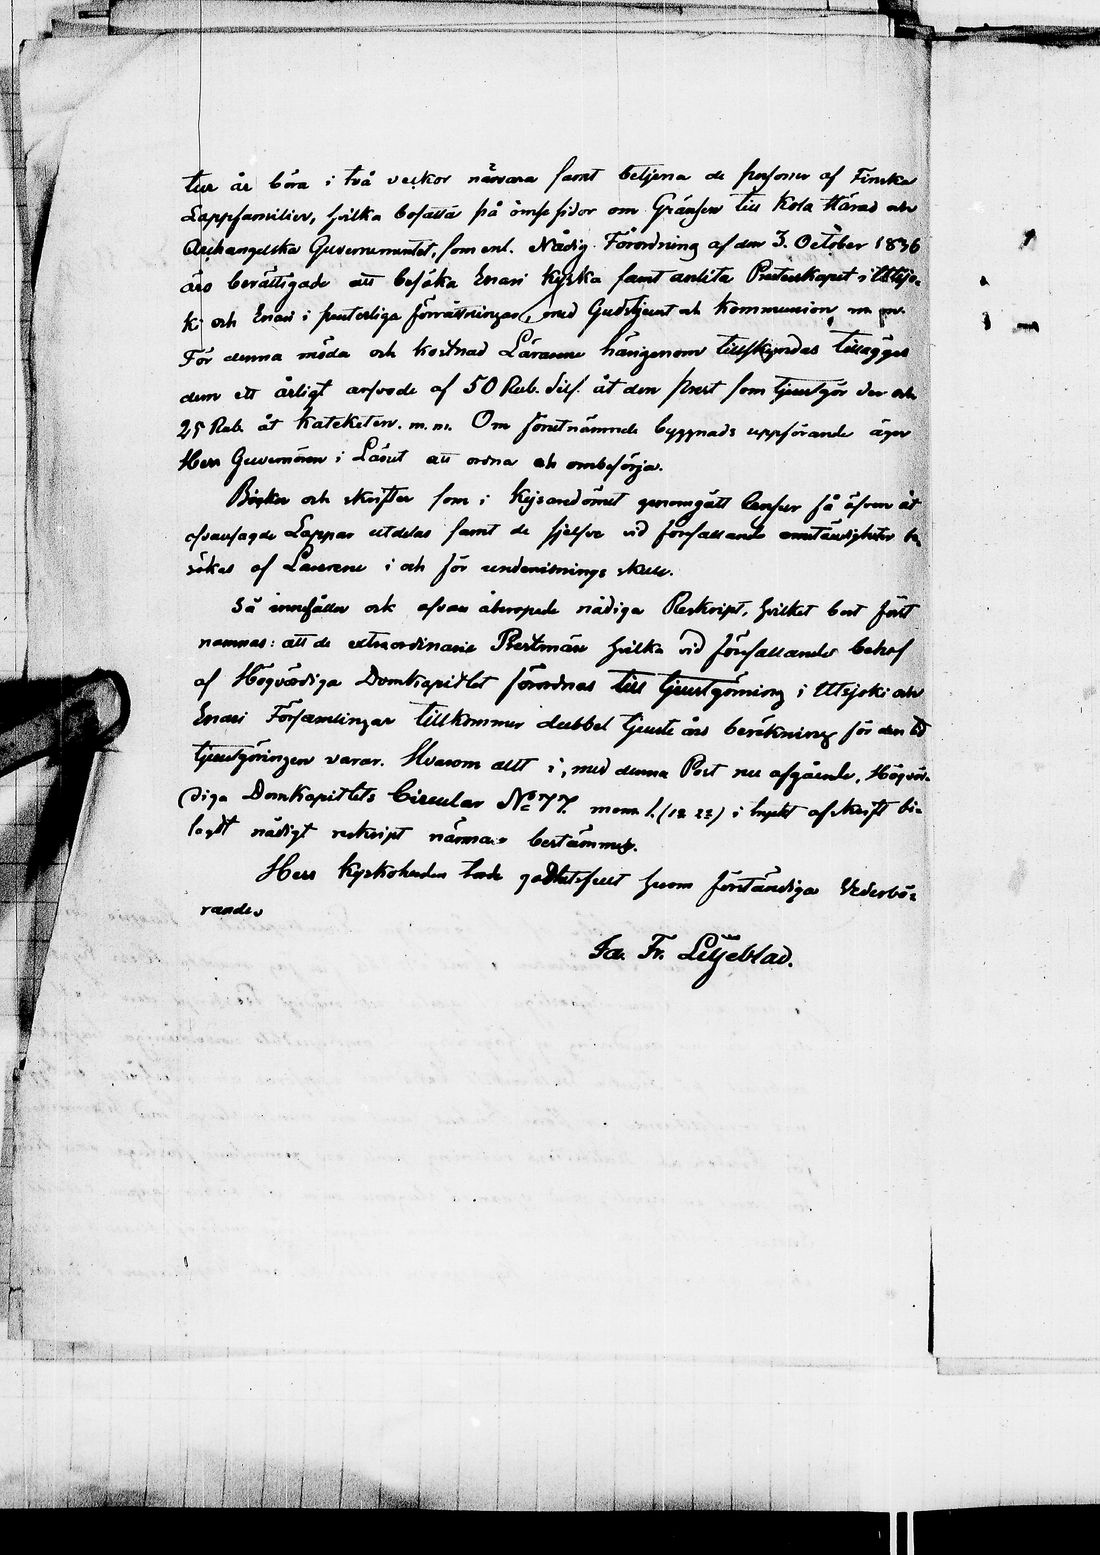 tur år böra i två veckor närvara samt betjena de personer af Finska
Lappfamilier, hvilka bosatta på ömse sidor om Gränsen till Kola Härad och
Archangelska Guvernementet, som enl. Nådig Förordning af den 3. October 1836
äro berättigade att besöka Enari Kyrka samt anlita Presterskapet i Utsjo-
ki och Enari i presterliga förrättningar, med Gudstjenst och Kommunion m. m.
För denna möda och kostnad Lärarene härigenom tillskyndas tillägges
dem ett årligt arfvode af 50 Rub. Silf. åt den prest som tjenstgör der och
25 Rub. åt Kateketen. m. m. Om förutnämnde byggnads uppförande äger
Herr Guvernören i Länet att ordna och ombesörja.
Böcker och skrifter som i Kejsaredömet genomgått Censur få äfven åt
ofvansagde Lappar utdelas samt de sjelfve vid förefallande omständigheter be
sökas af Lärarene i och för undervisnings skull.
Så innehåller ock ofvan åberopade nådiga Reskript, hvilket bort först
nämnas: att de extraordinarie Prestmän hvilka vid förefallande behof
af Högvördiga Domkapitlet förordnas till tjenstgörning i Utsjoki och
Enari Församlingar tillkommer dubbel tjenste års beräkning för den tid
tjenstgöringen varar. Hvarom allt i, med denna Post nu afgående, Högvör-
diga Domkapitlets Circulär No 77. mom 1. (12 23) i tryckt afskrift bi-
lagdt nådigt reskript närmare bestämmes.
Herr Kyrkoherden torde godhetsfullt härom förständiga Vederbö-
rande.
Ja. Fr. Liljeblad.